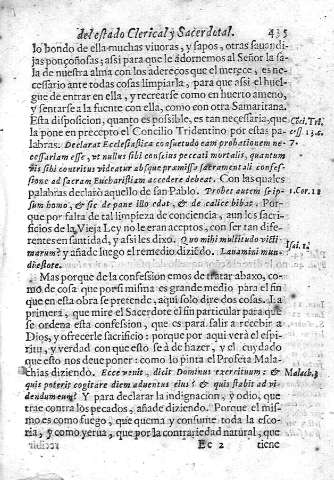 del estado Clerical y Sacerdotal. 435
lo hondo de ella muchas viuoras, y sapos, otras sauandi-
jas ponçoñosas; assi para que le adornemos al Señor la sa-
la de nuestra alma con los adereços que el merece, es ne-
cessario ante todas cosas limpiarla, para que assi el huel-
gue de entrar en ella, y recrearse como en huerto ameno,
y sentarse a la fuente con ella, como con otra Samaritana.
Esta disposicion, quanto es posible, es tan necessaria, que
la pone en precepto el Concilio Tridentino por estas pa-
labras. Declarat Ecclesiastica consuetudo eam probationem ne-
cessariam esse, vt nullus sibi conscius peccati mortalis, quantum
vis sibi contritus videatur absque præmissa sacramentali confes-
sione ad sacram Eucharistiam accedere debeat. Con las quales
palabras declarò aquello de san Pablo. Probet autem se ip-
sum homo, & sic de pane illo edat, & de calice bibat. Por
que por falta de tal limpieza de conciencia, aun los sacri-
ficios de la Vieja Ley no le eran aceptos, con ser tan dife-
rentes en santidad, y assi les dixo. Quo mihi multitudo victi
marum? y añade luego el remedio diziẽdo. Lauamini mun-
di estote.
Mas porque de la confession emos de tratar abaxo, co-
mo de cosa que por si misma es grande medio para el fin
que en esta obra se pretende, aqui solo dire dos cosas. La
primera, que mire el Sacerdote el fin particular para que
se ordena esta confession, que es para salir a recebir a
Dios, y ofrecerle sacrificio: porque por aqui verà el espi-
ritu, y verdad con que esto se à de hazer, y el cuydado
que esto nos deue poner: como lo pinta el Profeta Mala-
chias diziendo. Ecce venit, dicit Dominus exercituum: &
quis poterit cogitare diem aduentus eius? & quis stabit ad vi-
dendum eum? Y para declarar la indignacion, y odio, que
trae contra los pecados, añade diziendo. Porque el mis-
mo es como fuego, que quema y consume toda la esco-
ria, y como yerua, que por la contrariedad natural, que
Ee 2 tiene
7.
1. Cor. 11
Isai. 1.
Malach. 3